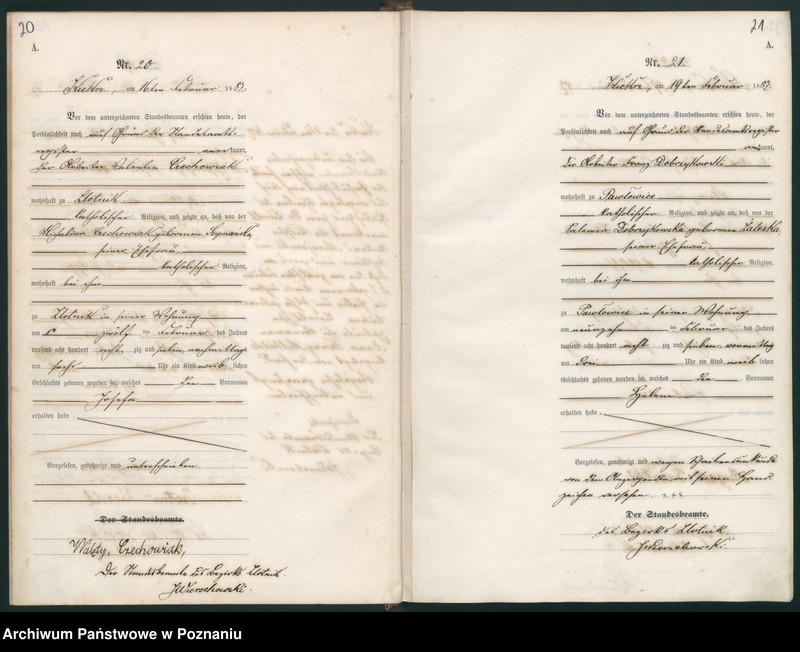 20
A.
Nr. 20
am 16ten Februar 1887.
Vor dem unterzeichneten Standesbeamten erschien heute, der
Persönlichkeit nach auf Grund der Standesamts
register kannt,
der Arbeiter Valentin Czechowiak
wohnhaft zu Zlotnik
katholischer Religion, und zeigte an, daß von der
Czechowiak geborenen
seiner Ehefrau
katholischer Religion,
wohnhaft bei ihm
zu Zlotnik in seiner Wohnung
am zwölf ten Februar des Jahres
tausend acht hundert acht zig und sieben, nachmittags
um sechs Uhr ein Kind weib lichen
Geschlechts geboren worden sei, welches den Vornamen
Josefa
erhalten habe.
Vorgelesen, genehmigt und unterschrieben.
Der Standesbeamte.
Walęty, Czechowiak,
Der Standesbeamte des Bezirks Zlotnik.
JWierzchowski.
21
A.
Nr. 21.
am 19ten Februar 1887.
Vor dem unterzeichneten Standesbeamten erschien heute, der
Persönlichkeit nach auf Grund der Standesamtsregister
kannt,
der Arbeiter Franz Dobrzykowski
wohnhaft zu Pawłowice
katholischer Religion, und zeigte an, daß von der
Dobrzykowska geborenen Zaleska,
seiner Ehefrau
katholischer Religion,
wohnhaft bei ihm
zu Pawłowice in seiner Wohnung
am neunzehn ten Februar des Jahres
tausend acht hundert acht zig und sieben, vormittag
um drei Uhr ein Kind weib lichen
Geschlechts geboren worden sei, welches den Vornamen
Helene
erhalten habe.
Vorgelesen, genehmigt und wegen Schreibensunkunde
von dem Anzeigenden mit seinem Hand
zeichen versehen. +++
Der Standesbeamte.
des Bezirks Zlotnik
JWierzchowski.
Archiwum Państwowe w Poznaniu